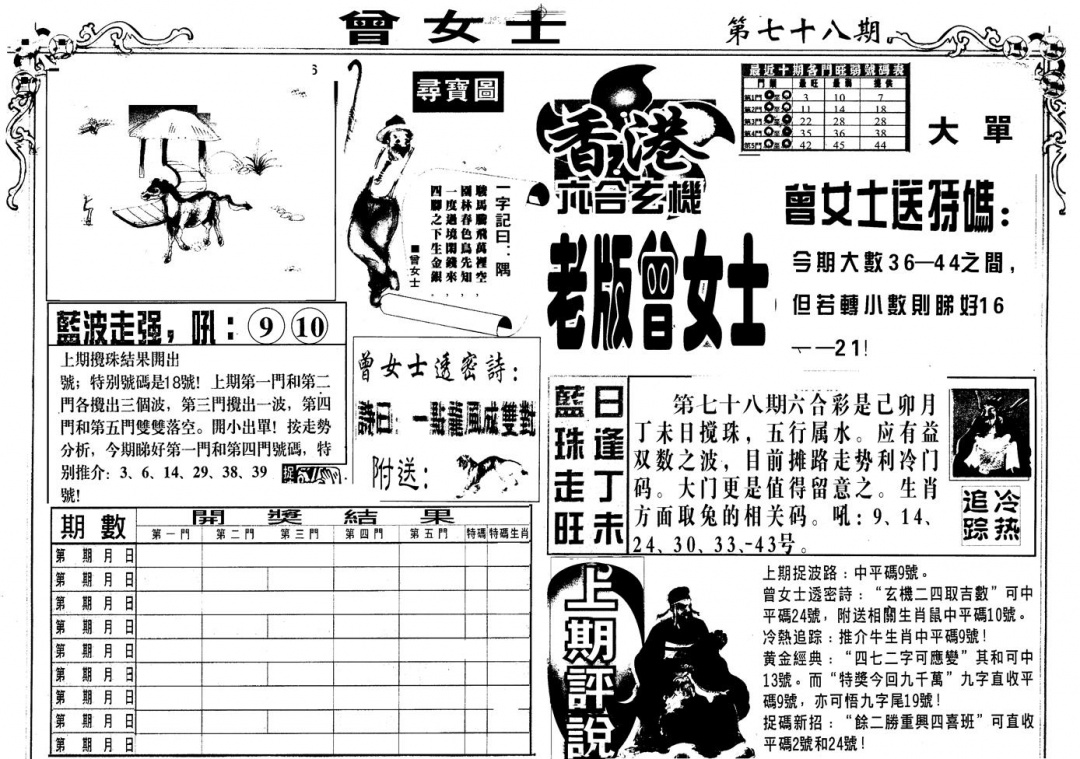 曾女士
第七十八期
尋寶圖
一字記曰：隅
駿馬騰飛萬裡空，
園林春色鳥先知，
一度過境閑錢來，
四腳之下生金銀。
■曾女士
香港
六合玄機
老版曾女士
最近十期各門旺弱號碼表
門類 最旺 最弱 提供
第1門 3 10 7
第2門 11 14 18
第3門 22 28 28
第4門 35 36 38
第5門 42 45 44
大單
曾女士送特碼：
今期大數36—44之間，
但若轉小數則睇好16
——21！
藍波走强，吼：⑨⑩
上期攪珠結果開出
號；特別號碼是18號！上期第一門和第二
門各攪出三個波，第三門攪出一波，第四
門和第五門雙雙落空。開小出單！按走勢
分析，今期睇好第一門和第四門號碼，特
别推介：3、6、14、29、38、39
號！
曾女士透密詩：
詩曰：一點龍風成雙對
附送：
藍珠走旺
日逢丁未
第七十八期六合彩是己卯月
丁未日搅珠，五行属水。应有益
双数之波，目前摊路走势利冷门
码。大门更是值得留意之。生肖
方面取兔的相关码。吼：9、14、
24、30、33、-43号。
冷热
追踪
期數
開獎結果
第一門 第二門 第三門 第四門 第五門 特碼 特碼生肖
第 期 月 日
第 期 月 日
第 期 月 日
第 期 月 日
第 期 月 日
第 期 月 日
第 期 月 日
第 期 月 日
第 期 月 日
上期評說
上期捉波路：中平碼9號。
曾女士透密詩：“玄機二四取吉數”可中
平碼24號，附送相關生肖鼠中平碼10號。
冷熱追踪：推介牛生肖中平碼9號！
黄金經典：“四七二字可應變”其和可中
13號。而“特獎今回九千萬”九字直收平
碼9號，亦可悟九字尾19號！
捉碼新招：“餘二勝重興四喜班”可直收
平碼2號和24號！